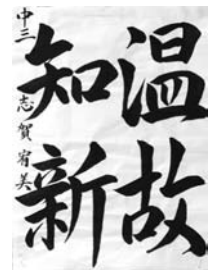 温故
知新
中三 志賀宥美